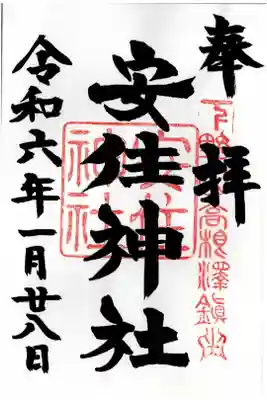 奉拝
下野高根澤鎮坐
安住神社
安住
神社
令和六年一月廿八日